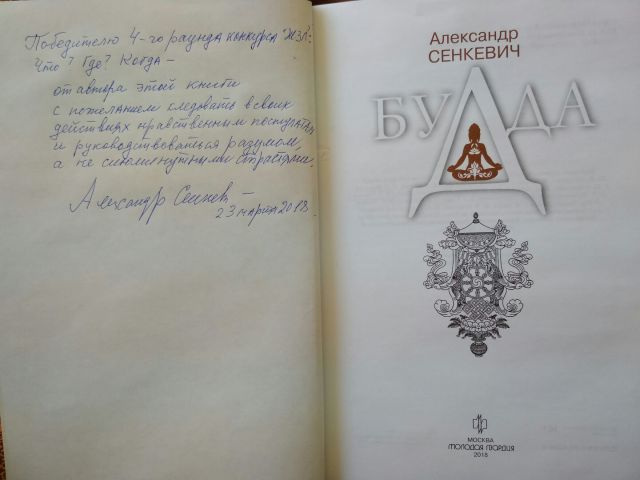 Победителю 4-го раунда конкурса "ЖЗЛ:
Что? Где? Когда –
от автора этой книги
с пожеланием следовать в своих
действиях нравственным постулатам
и руководствоваться разумом,
а не сиюминутными страстями.
Александр Сенкевич
23 марта 2018.
Александр
СЕНКЕВИЧ
БУДДА
МОСКВА
МОЛОДАЯ ГВАРДИЯ
2018